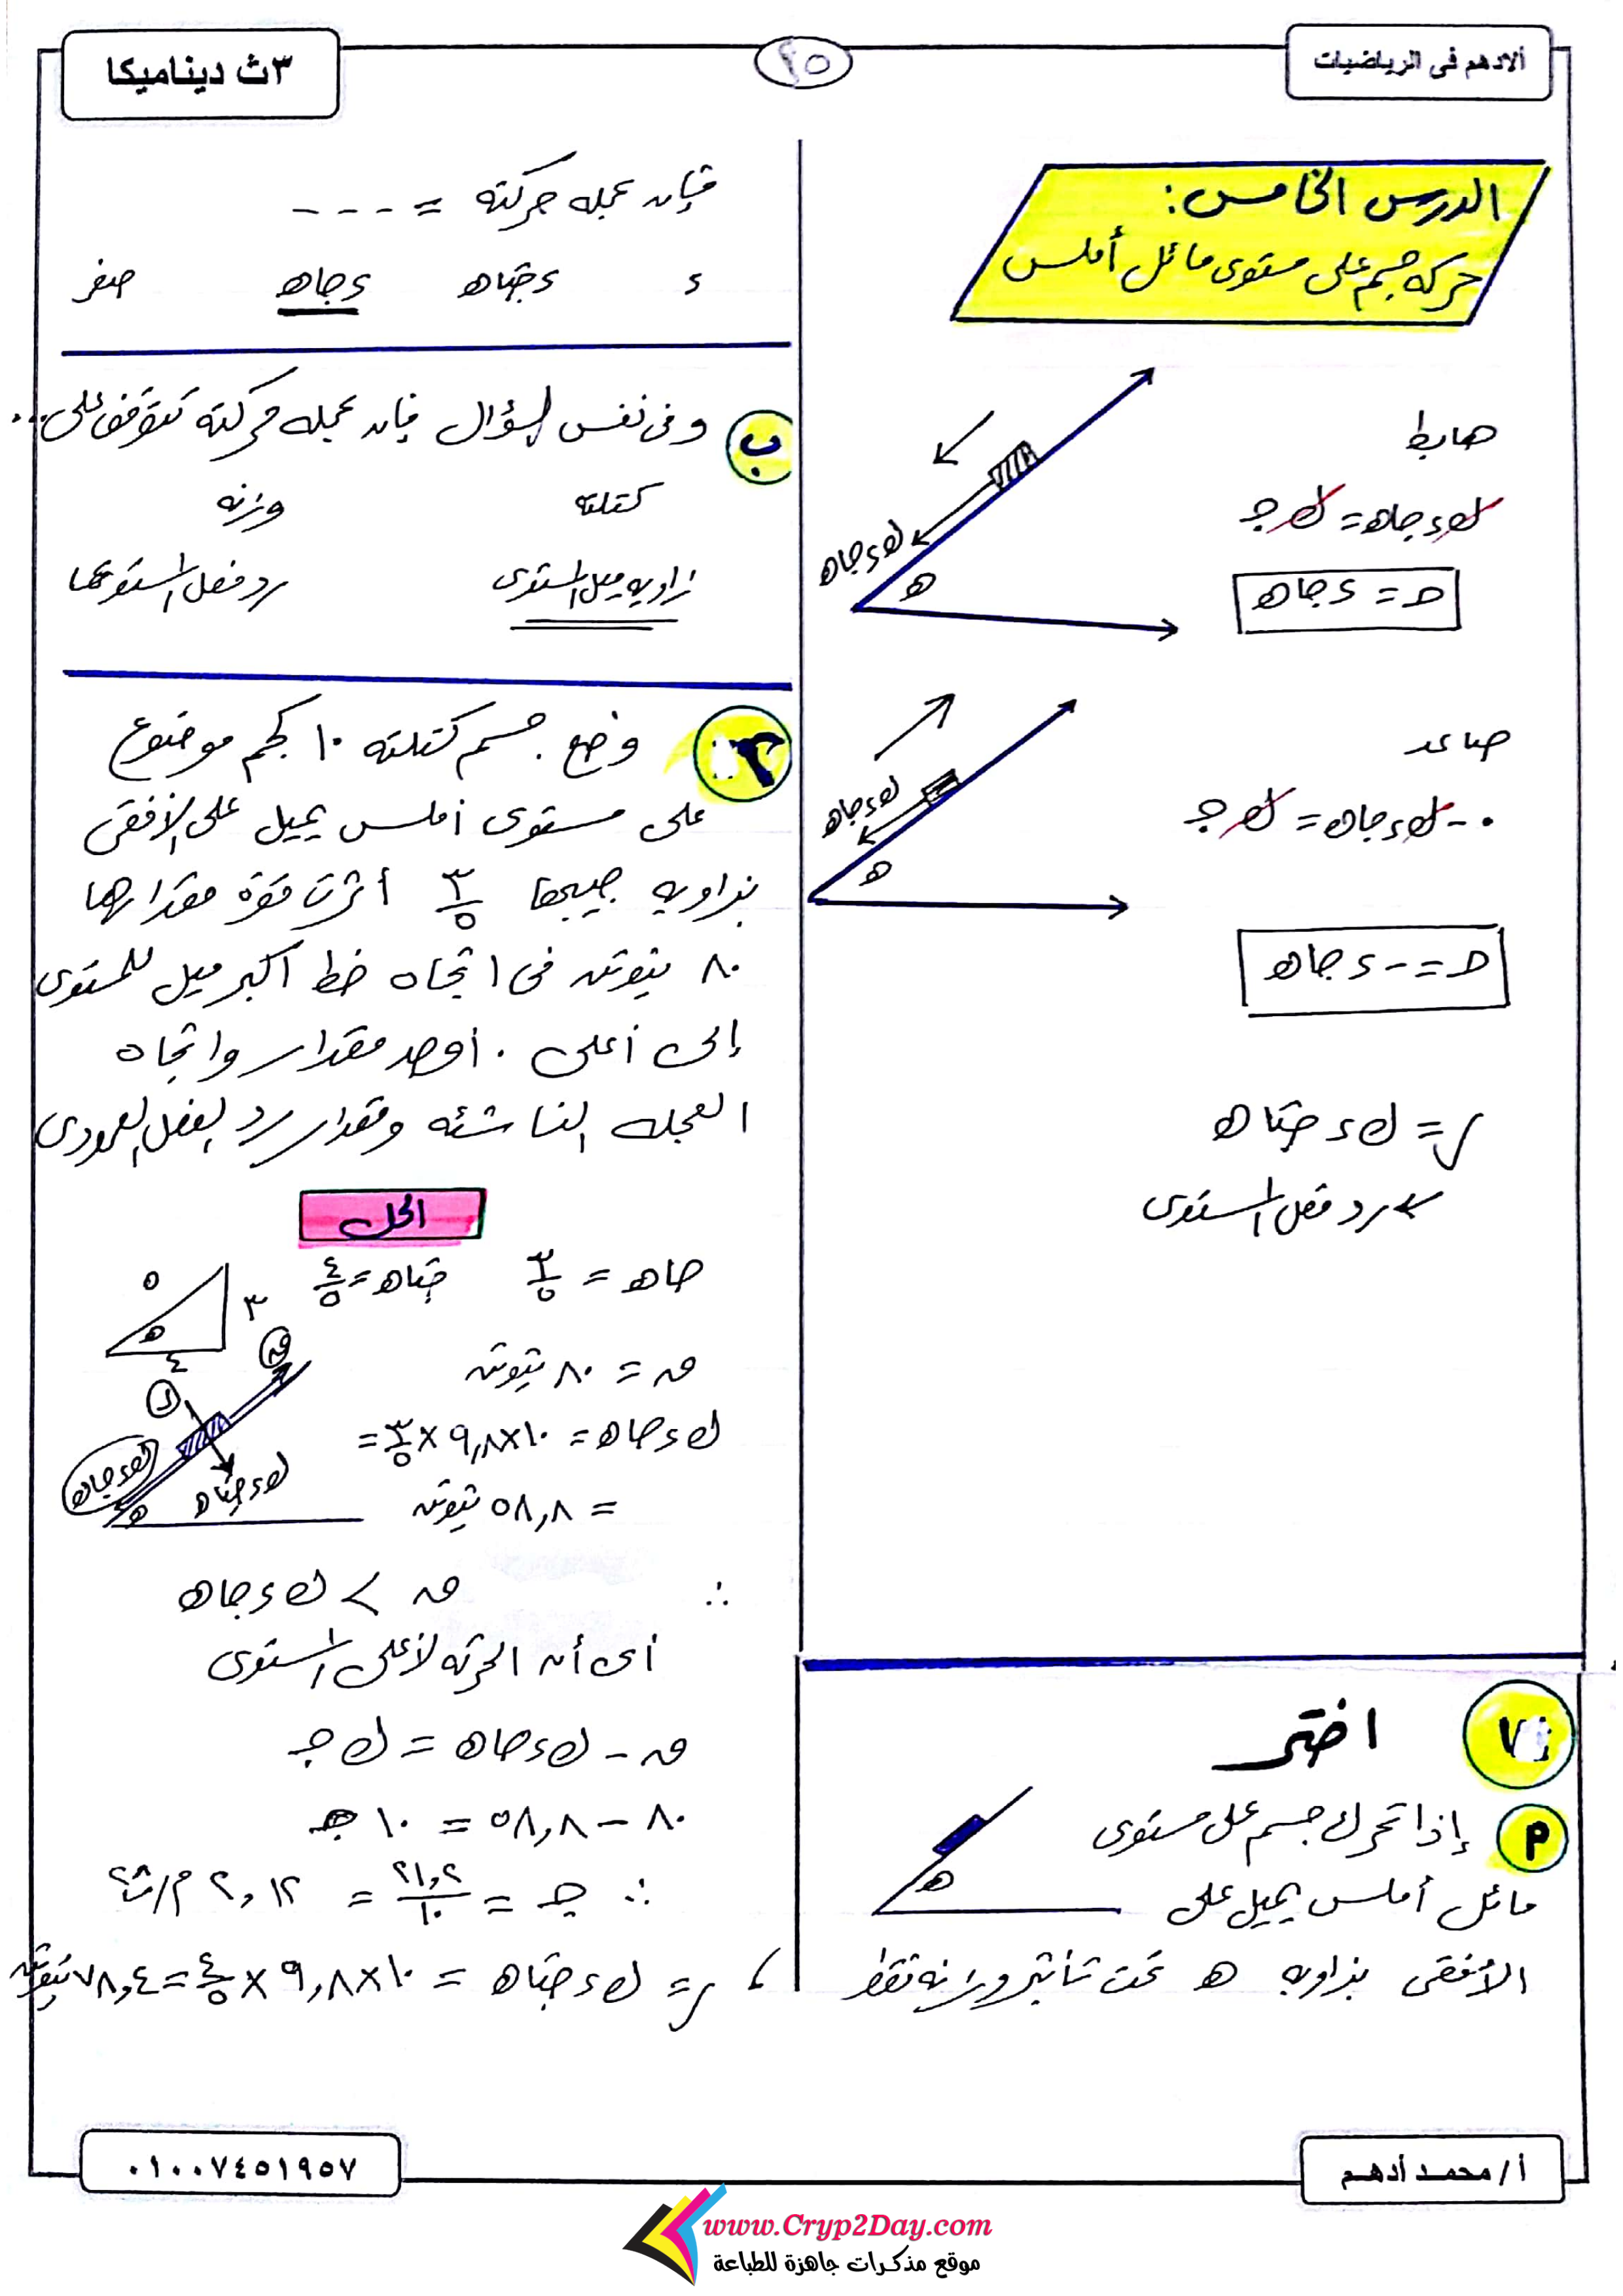 ألادهم فى الرياضيات
٢٥
٣ث ديناميكا
الدرس الخامس:
حركة جسم على مستوى مائل أملس
هابط
ك ء جاه = ك جـ
جـ = ء جاه
ك ء جاه
ه
صاعد
٠ - ك ء جاه = ك جـ
جـ = - ء جاه
ك ء جاه
ه
ر = ك ء جتاه
رد فعل المستوى
اختر
إذا تحرك جسم على مستوى
مائل أملس يميل على
الأفقى بزاويه ه تحت تأثير وزنه فقط
ه
فإن عجله حركته = ----
ء ء جتاه ء جاه صفر
ب
وفى نفس السؤال فإن عجله حركته تتوقف على...
كتلته وزنه
زاويه ميل المستوى رد فعل المستوى
٢
وضع جسم كتلته ١٠ كجم موضوع
على مستوى أملس يميل على الأفقى
بزاويه جيبها ٣/٥ أثرت قوة مقدارها
٨٠ نيوتن فى اتجاه خط أكبر ميل للمستوى
إلى أعلى . أوجد مقدار واتجاه
العجله الناشئه ومقدار رد الفعل العمودى
الحل
جاه = ٣/٥ جتاه = ٤/٥
٥ ٣ ٤ ه
ق = ٨٠ نيوتن
ك ء جاه = ١٠×٩,٨×٣/٥ =
= ٥٨,٨ نيوتن
ق ر ك ء جاه ك ء جتاه ه
∴ ق > ك ء جاه
أى أن الحركه لأعلى المستوى
ق - ك ء جاه = ك جـ
٨٠ - ٥٨,٨ = ١٠ جـ
∴ جـ = ٢١,٢/١٠ = ٢,١٢ م/ث٢
، ر = ك ء جتاه = ١٠×٩,٨×٤/٥ = ٧٨,٤ نيوتن
أ/ محمد أدهم
٠١٠٠٧٤٥١٩٥٧
www.Cryp2Day.com
موقع مذكرات جاهزة للطباعة